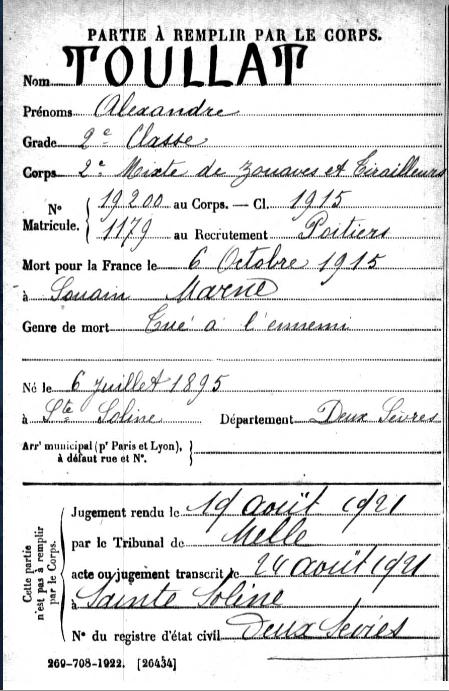 PARTIE À REMPLIR PAR LE CORPS.
Nom TOULLAT
Prénoms Alexandre
Grade 2e Classe
Corps 2e Mixte de Zouaves et Tirailleurs
N° Matricule. { 19200 au Corps. — Cl. 1915
1179 au Recrutement Poitiers
Mort pour la France le 6 Octobre 1915
à Souain Marne
Genre de mort Tué à l'ennemi
Né le 6 Juillet 1895
à Ste Soline Département Deux Sèvres
Arrt municipal (pr Paris et Lyon), à défaut rue et N°. }
Cette partie n'est pas à remplir par le Corps. {
Jugement rendu le 19 août 1921
par le Tribunal de Melle
acte ou jugement transcrit le 24 août 1921
à Sainte Soline
N° du registre d'état civil Deux Sèvres
269-708-1922. [26434]